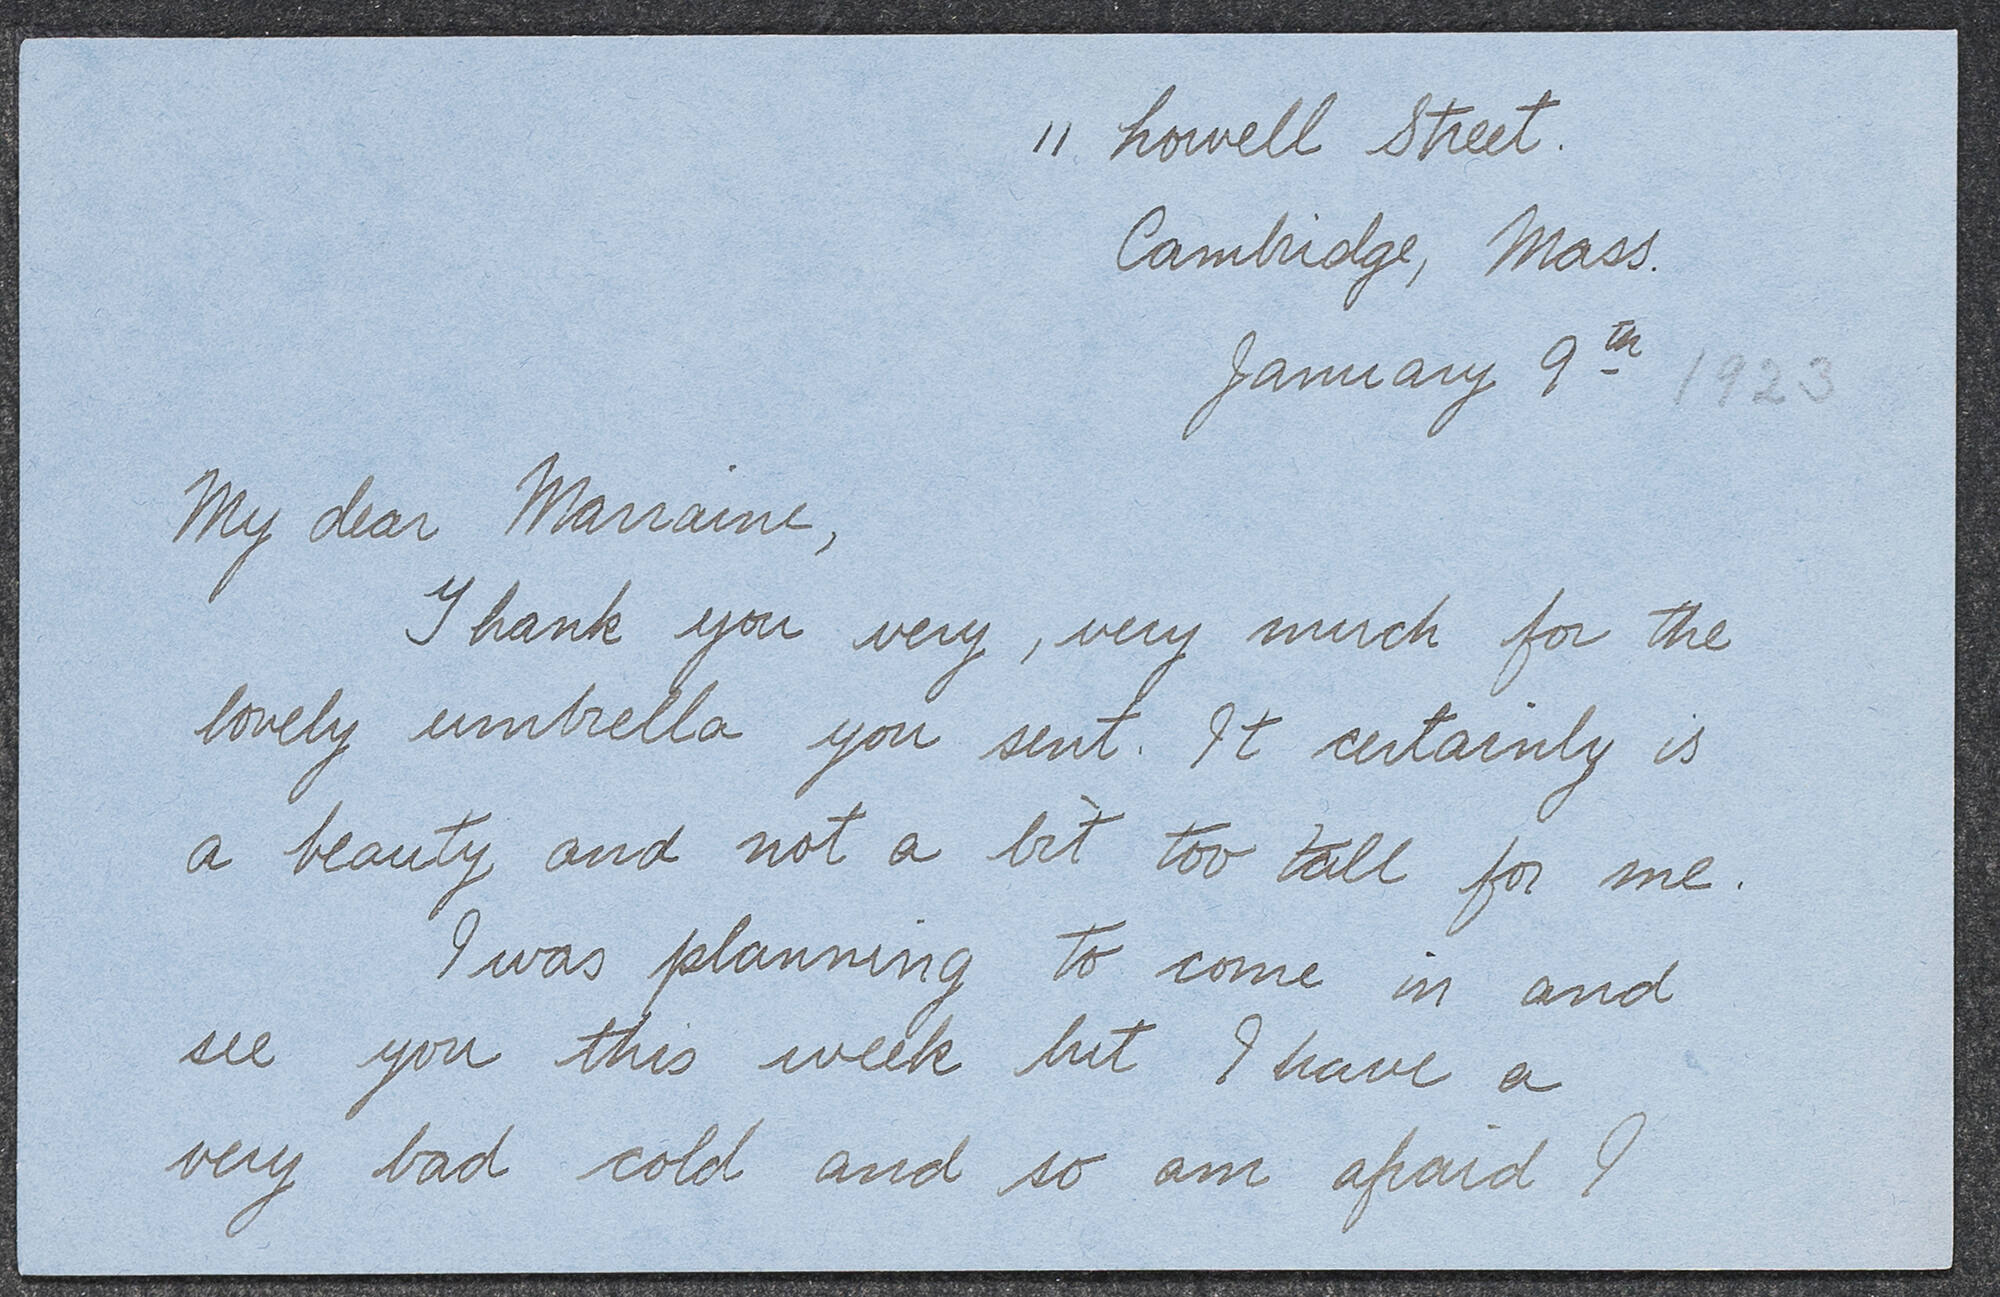 11 Lowell Street.
Cambridge, Mass.
January 9th 1923
My dear Marraine,
Thank you very, very much for the
lovely umbrella you sent. It certainly is
a beauty and not a bit too tall for me.
I was planning to come in and
see you this week but I have a
very bad cold and so am afraid I